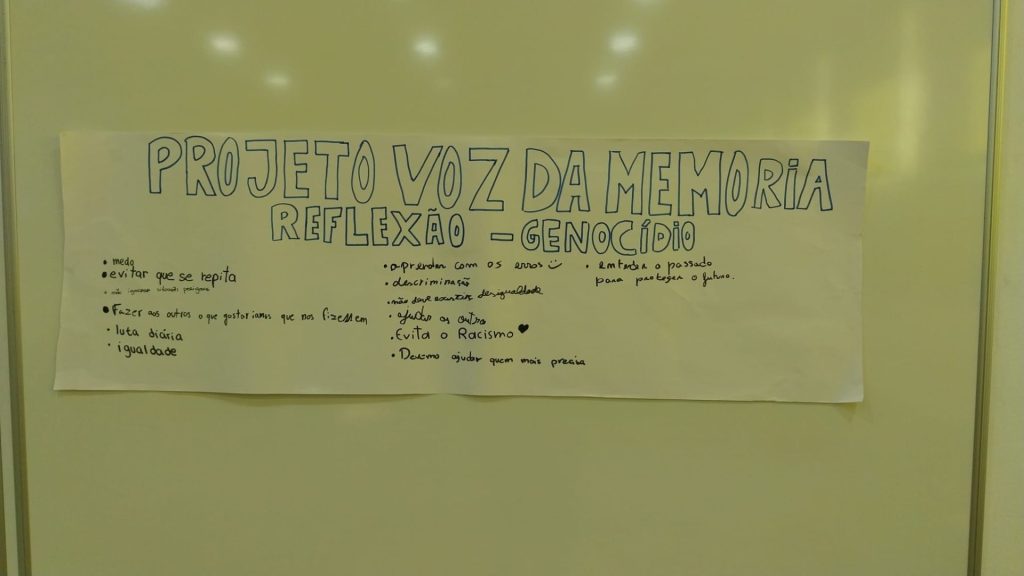 PROJETO VOZ DA MEMORIA
REFLEXÃO - GENOCÍDIO
• medo
• evitar que se repita
• não ignorar
• Fazer aos outros o que gostaríamos que nos fizessem
• luta diária
• igualdade
• aprender com os erros
• descriminação
• não deve existir desigualdade
• ajudar os outro
• Evita o Racismo ♥
• Devemo ajudar quem mais precisa
• entender o passado
para proteger o futuro.